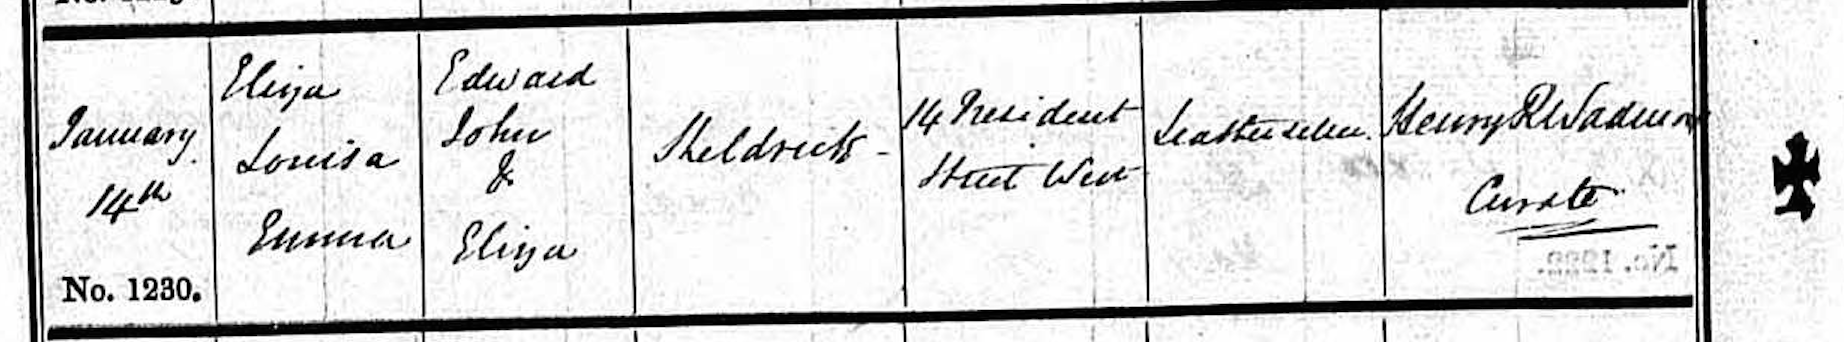 January
14th
No. 1230.
Eliza
Louisa
Emma
Edward
John
&
Eliza
Sheldrick
14 President
Street West
Leatherseller
Henry R Wadmore
Curate